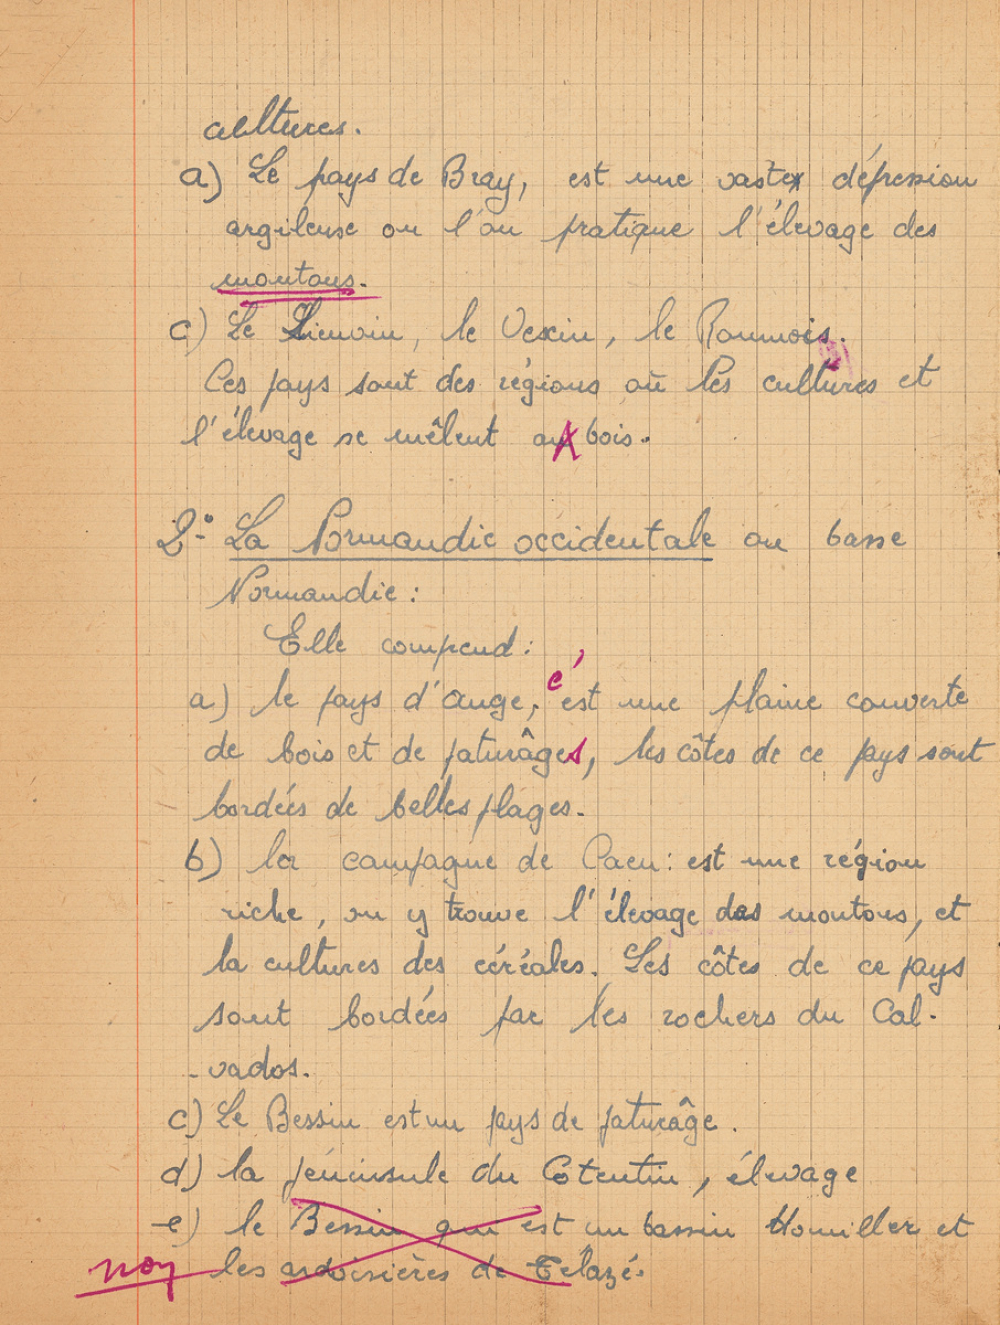 cultures.
a) Le pays de Bray, est une vaste dépression
argileuse ou l'on pratique l'élevage des
moutons.
c) Le Lieuvin, le Vexin, le Roumois.
Ces pays sont des régions où les cultures et
l'élevage se mêlent aux bois.
2° La Normandie occidentale ou basse
Normandie :
Elle comprend :
a) le pays d'auge, c'est une plaine couverte
de bois et de paturâges, les côtes de ce pays sont
bordées de belles plages.
b) la campagne de Caen : est une région
riche, on y trouve l'élevage des moutons, et
la cultures des céréales. Les côtes de ce pays
sont bordées par les rochers du Cal-
-vados.
c) Le Bessin est un pays de paturâge.
d) la péninsule du Cotentin, élevage
e) le Bessin qui est un bassin Houiller et
non les ardoisières de Télazé.